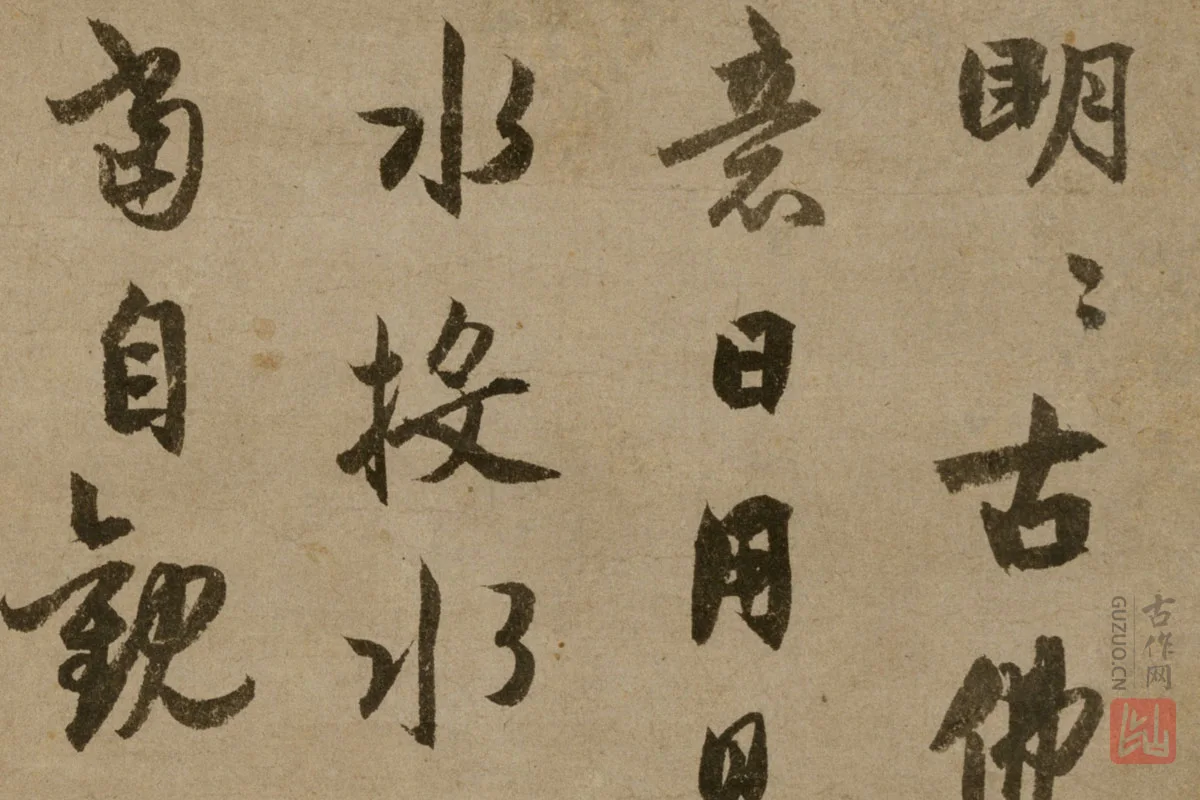 明〻古佛
意日用
水投水
當自觀
古作网
GUZUO.CN